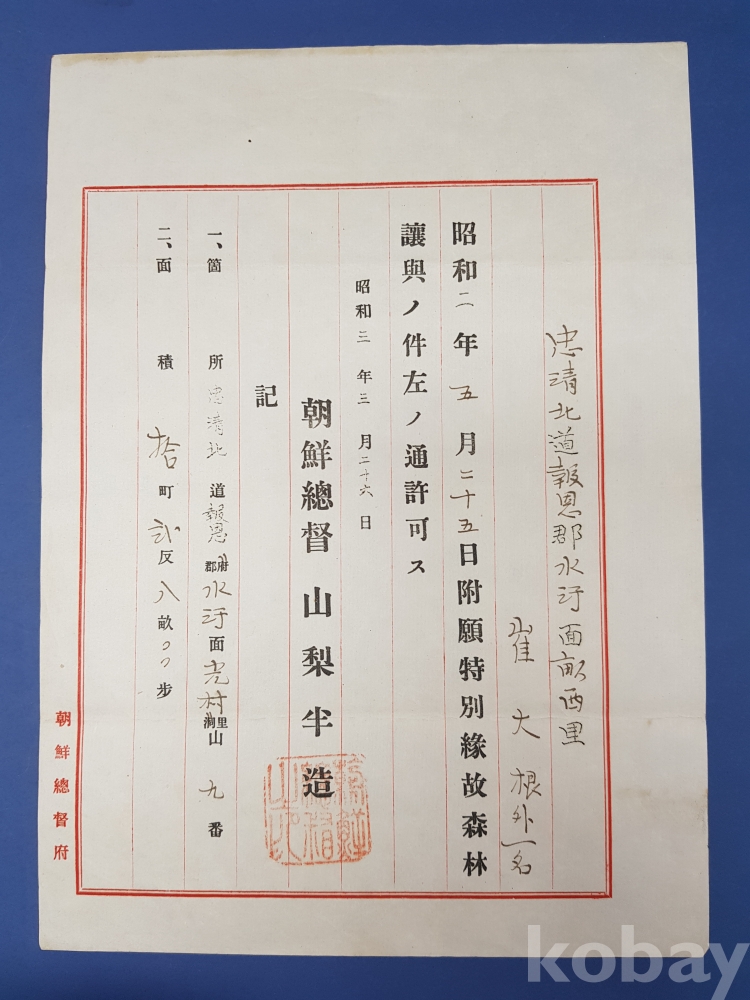 忠清北道報恩郡水汙面畝西里
崔大根外一名
昭和二年五月二十五日附願特別緣故森林
讓與ノ件左ノ通許可ス
昭和三年三月二十六日
朝鮮總督 山梨半造
朝鮮總督之印
記
一、箇所 忠清北道報恩郡府水汙面光村里洞山九番
二、面積 拾町弐反八畝〇〇步
朝鮮總督府
kobay